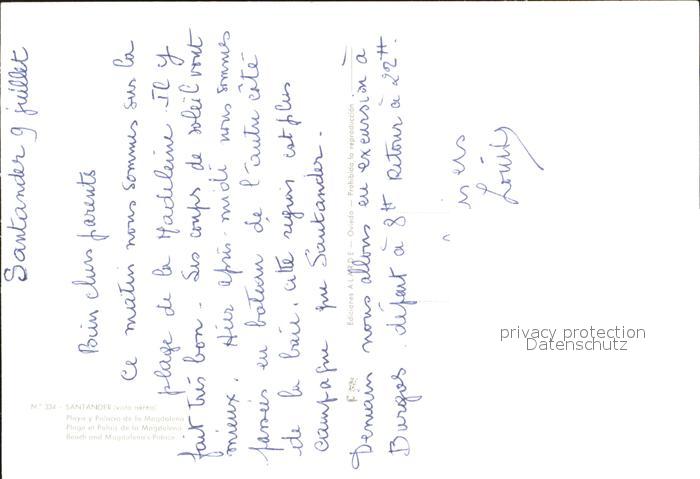 Santander 9 juillet
Bien chers parents
Ce matin nous sommes sur la
plage de la Madeleine. Il y
fait très bon. Les coups de soleil vont
mieux. Hier après-midi nous sommes
passés en bateau de l'autre côté
de la baie, cette région est plus
campagne que Santander.
Demain nous allons en excursion à
Burgos départ à 8H Retour à 22H.
Nº 334 - SANTANDER (vista aérea)
Playa y Palacio de la Magdalena
Plage et Palais de la Magdalena
Beach and Magdalena's Palace
Ediciones ALARDE - Oviedo - Prohibida la reproducción
privacy protection
Datenschutz